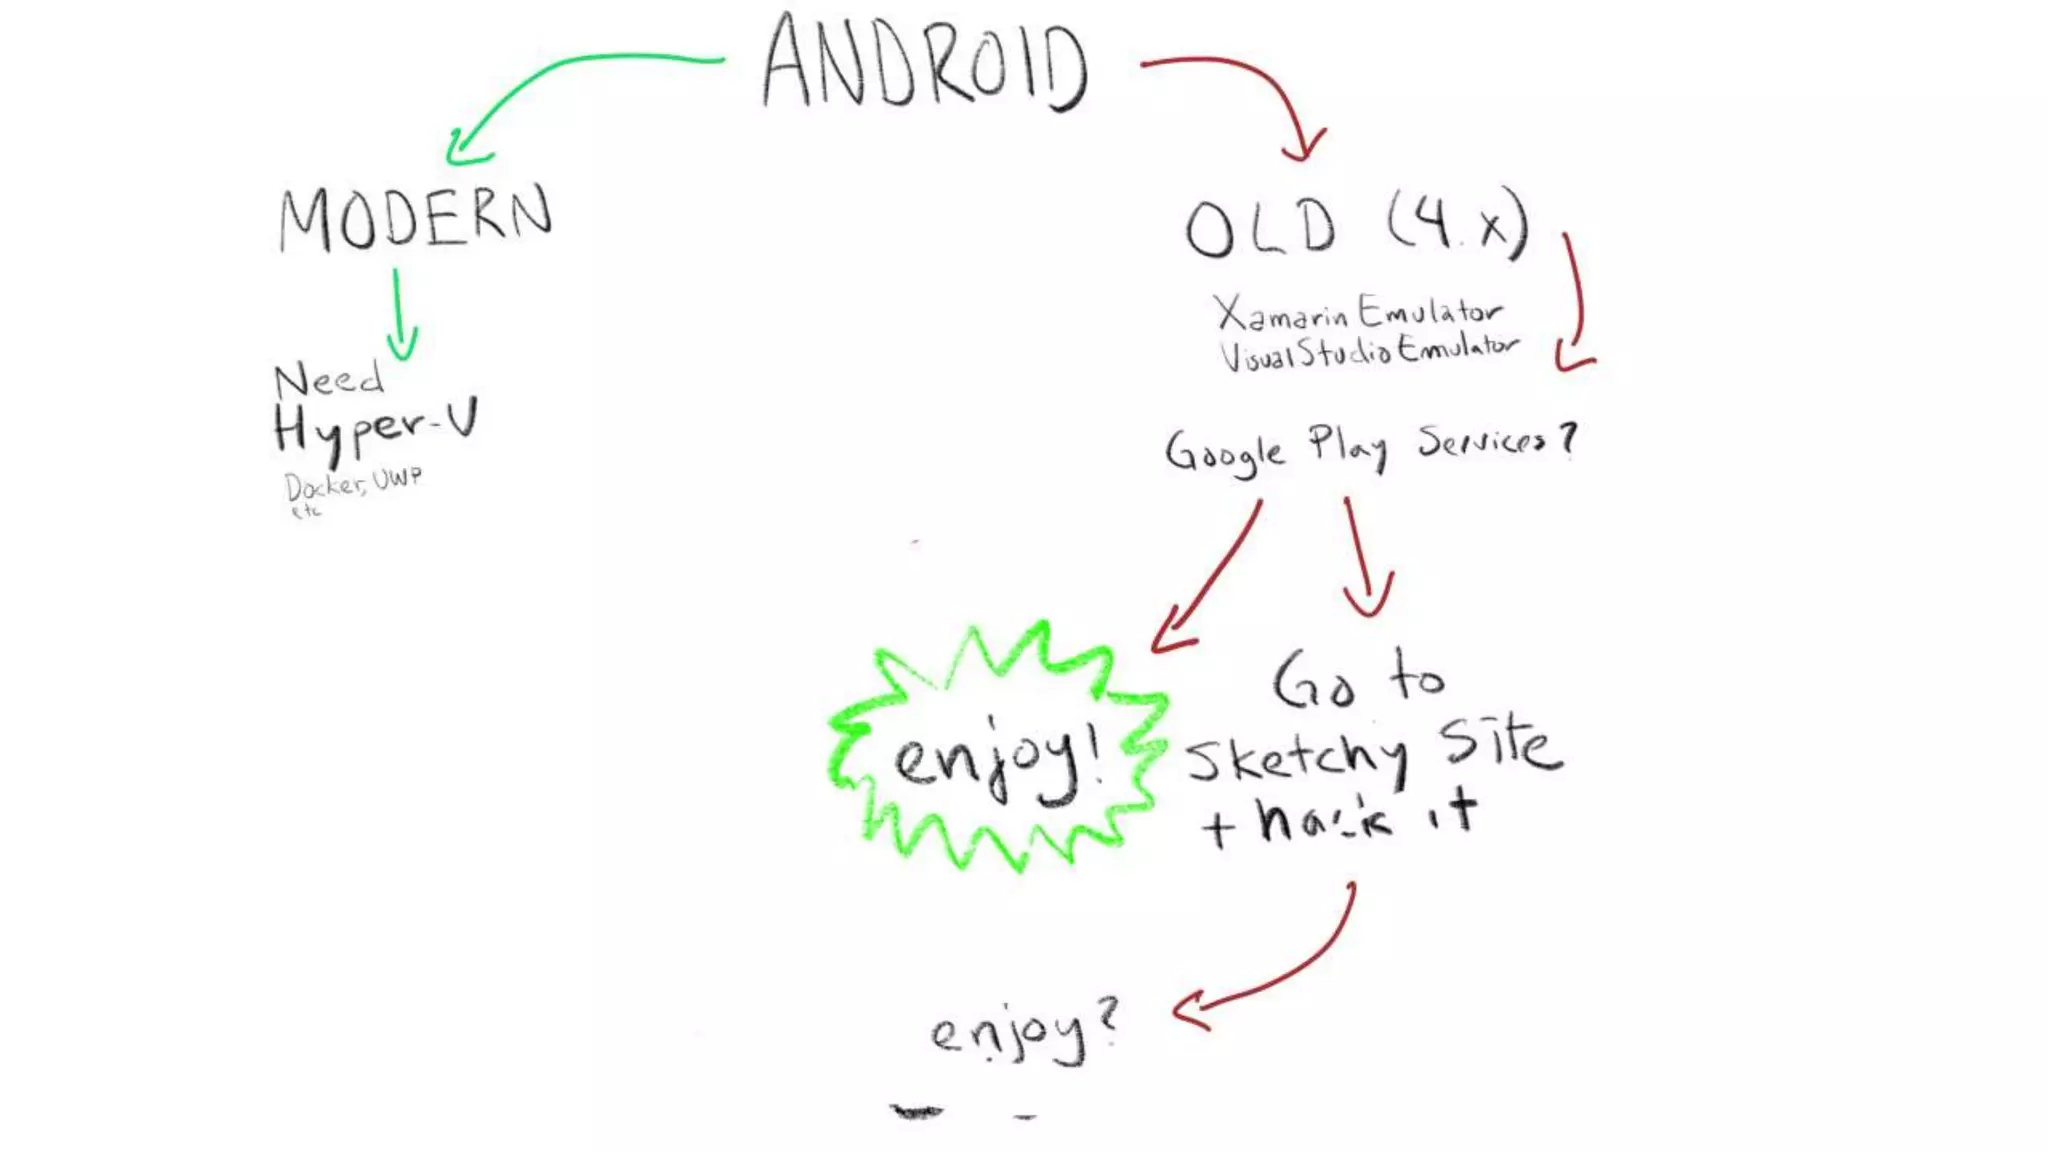 ANDROID
MODERN
OLD (4.x)
Xamarin Emulator
Visual Studio Emulator
Need
Hyper-V
Docker, UWP
etc
Google Play Services?
enjoy!
Go to
Sketchy Site
+ hack it
enjoy?